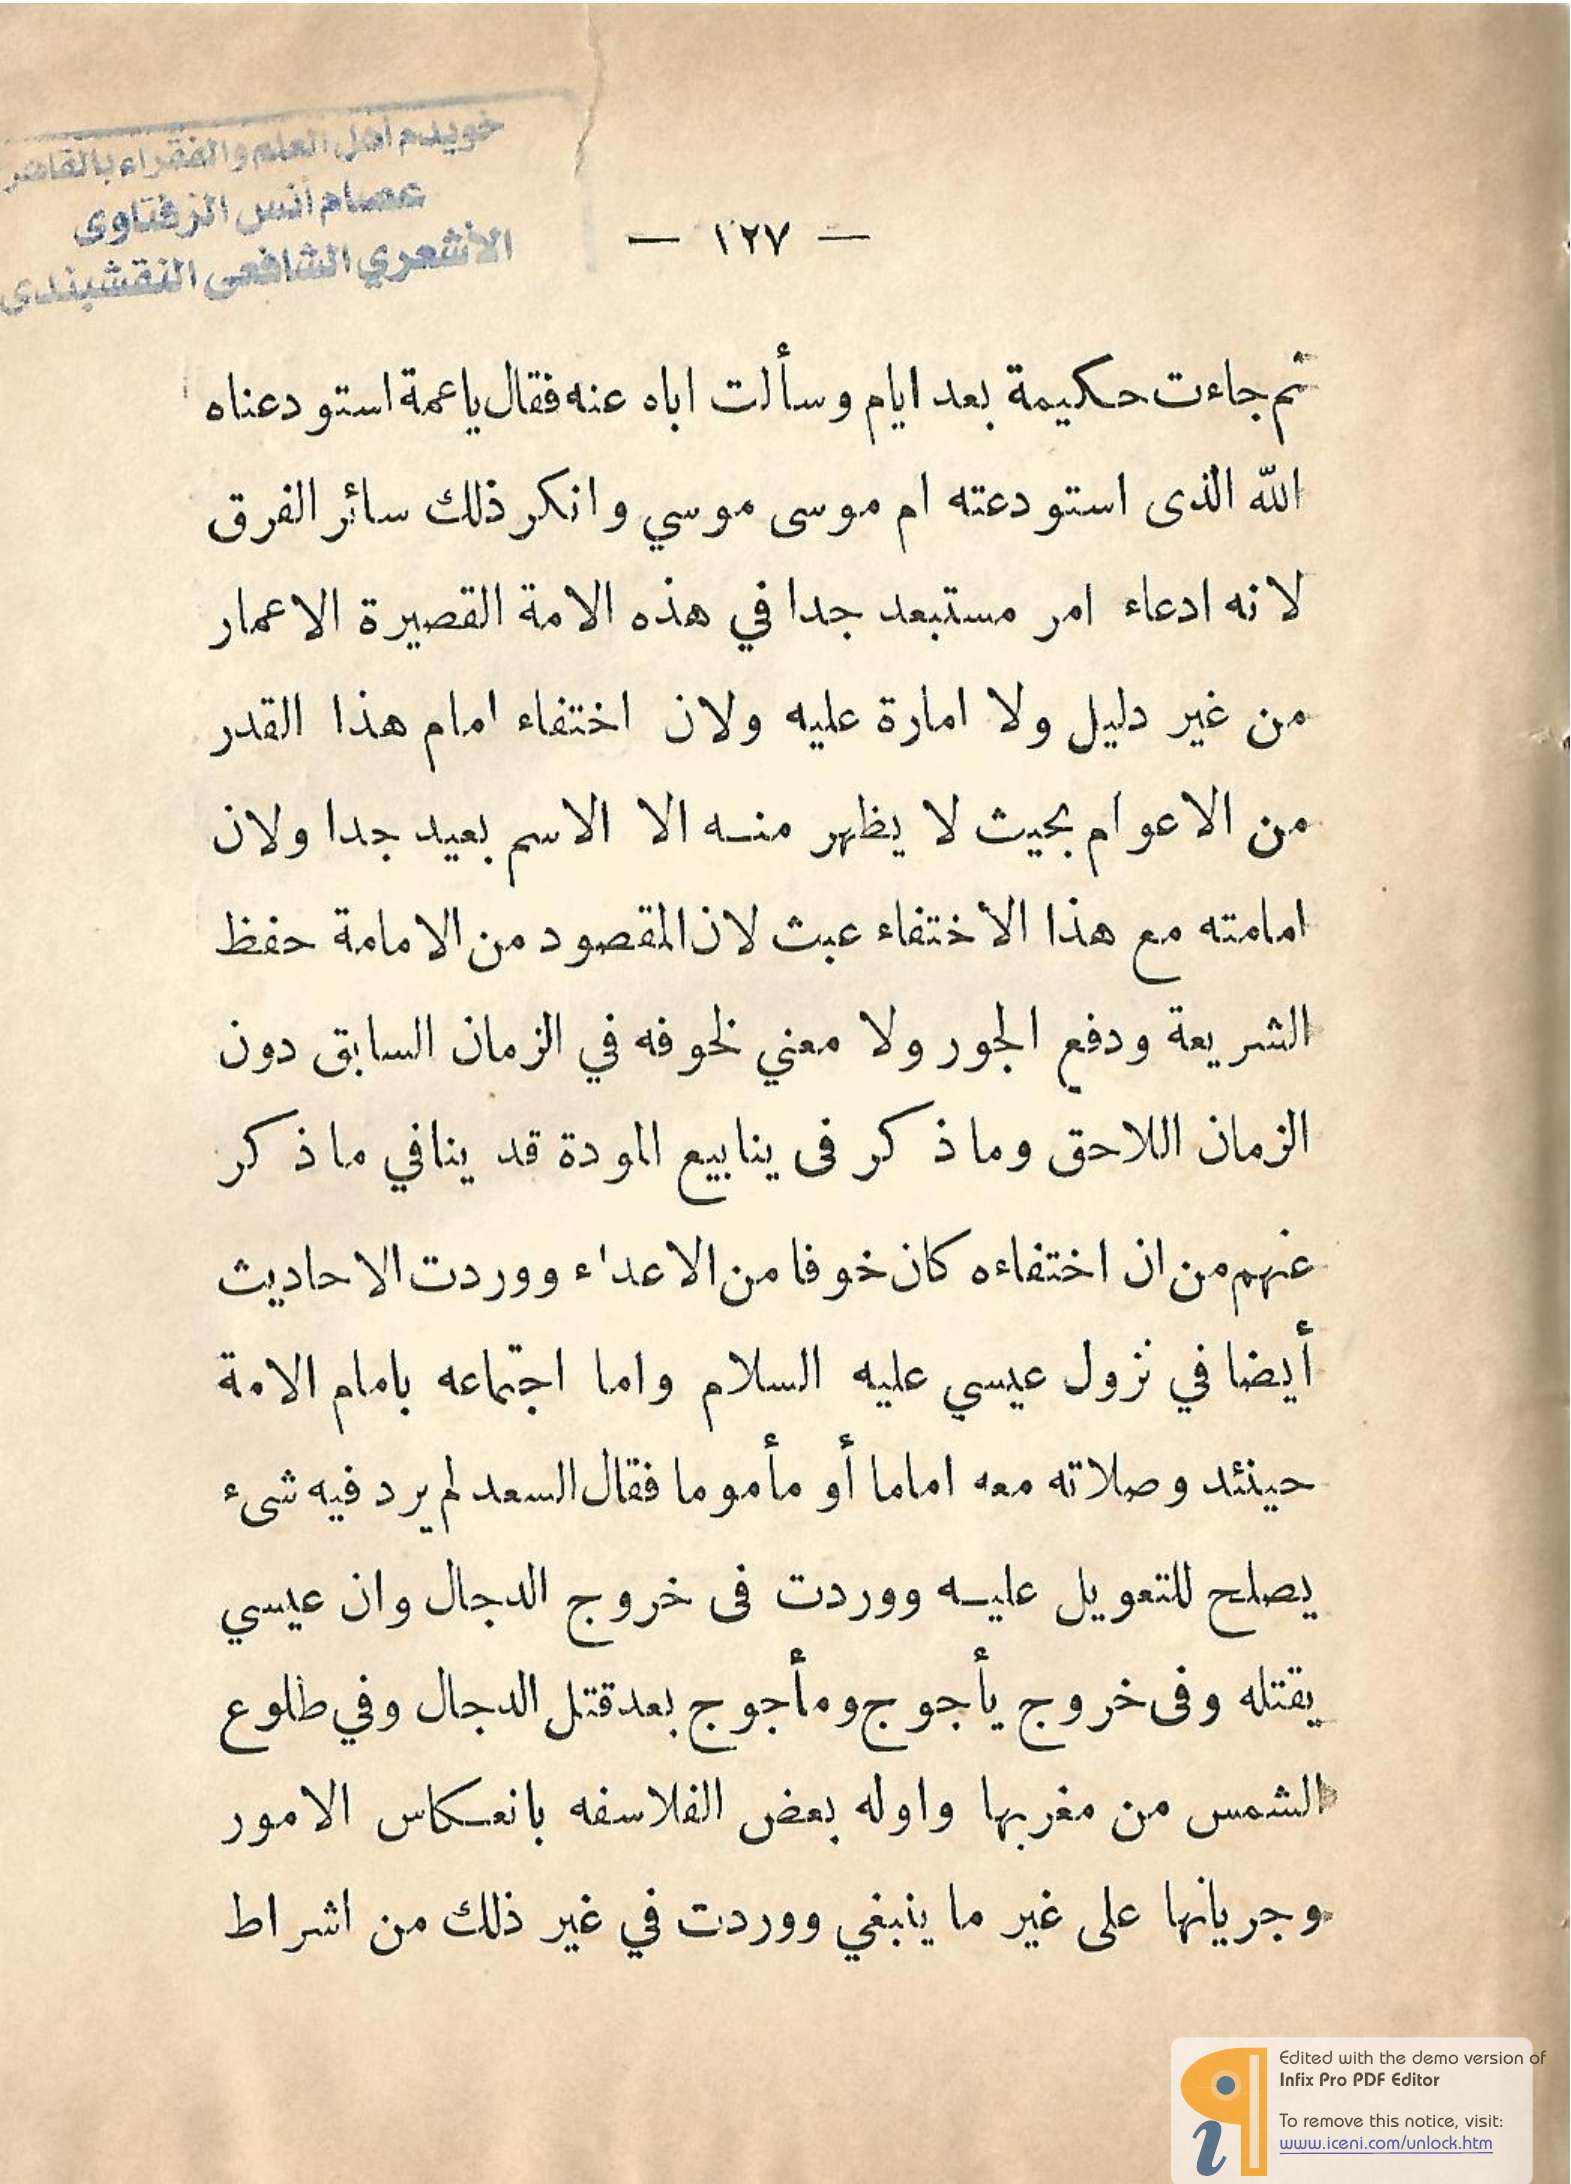 خويدم أهل العلم والفقراء بالقاهر
عصام أنس الزفتاوى
الأشعري الشافعى النقشبندى
— ١٢٧ —
ثم جاءت حكيمة بعد ايام وسألت اباه عنه فقال ياعمة استودعناه
الله الذى استودعته ام موسى موسي وانكر ذلك سائر الفرق
لانه ادعاء امر مستبعد جدا في هذه الامة القصيرة الاعمار
من غير دليل ولا امارة عليه ولان اختفاء امام هذا القدر
من الاعوام بحيث لا يظهر منه الا الاسم بعيد جدا ولان
امامته مع هذا الاختفاء عبث لان المقصود من الامامة حفظ
الشريعة ودفع الجور ولا معني لخوفه في الزمان السابق دون
الزمان اللاحق وما ذكر فى ينابيع المودة قد ينافي ما ذكر
عنهم من ان اختفاءه كان خوفا من الاعداء ووردت الاحاديث
أيضا في نزول عيسي عليه السلام واما اجتماعه بامام الامة
حينئد وصلاته معه اماما أو مأموما فقال السعد لم يرد فيه شىء
يصلح للتعويل عليه ووردت فى خروج الدجال وان عيسي
يقتله وفى خروج يأجوج ومأجوج بعد قتل الدجال وفي طلوع
الشمس من مغربها واوله بعض الفلاسفه بانعكاس الامور
وجريانها على غير ما ينبغي ووردت في غير ذلك من اشراط
Edited with the demo version of
Infix Pro PDF Editor
To remove this notice, visit:
www.iceni.com/unlock.htm